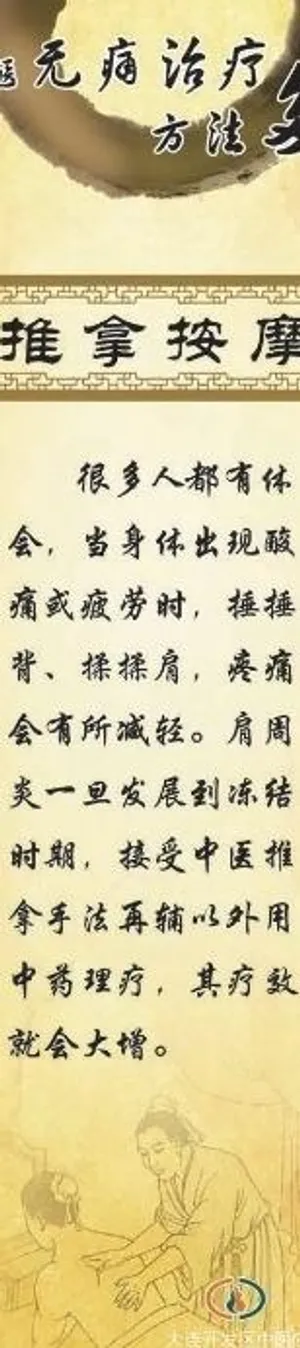 无痛治疗
方法
推拿按摩
很多人都有体
会，当身体出现酸
痛或疲劳时，捶捶
背、揉揉肩，疼痛
会有所减轻。肩周
炎一旦发展到冻结
时期，接受中医推
拿手法再辅以外用
中药理疗，其疗效
就会大增。
大连开发区中医